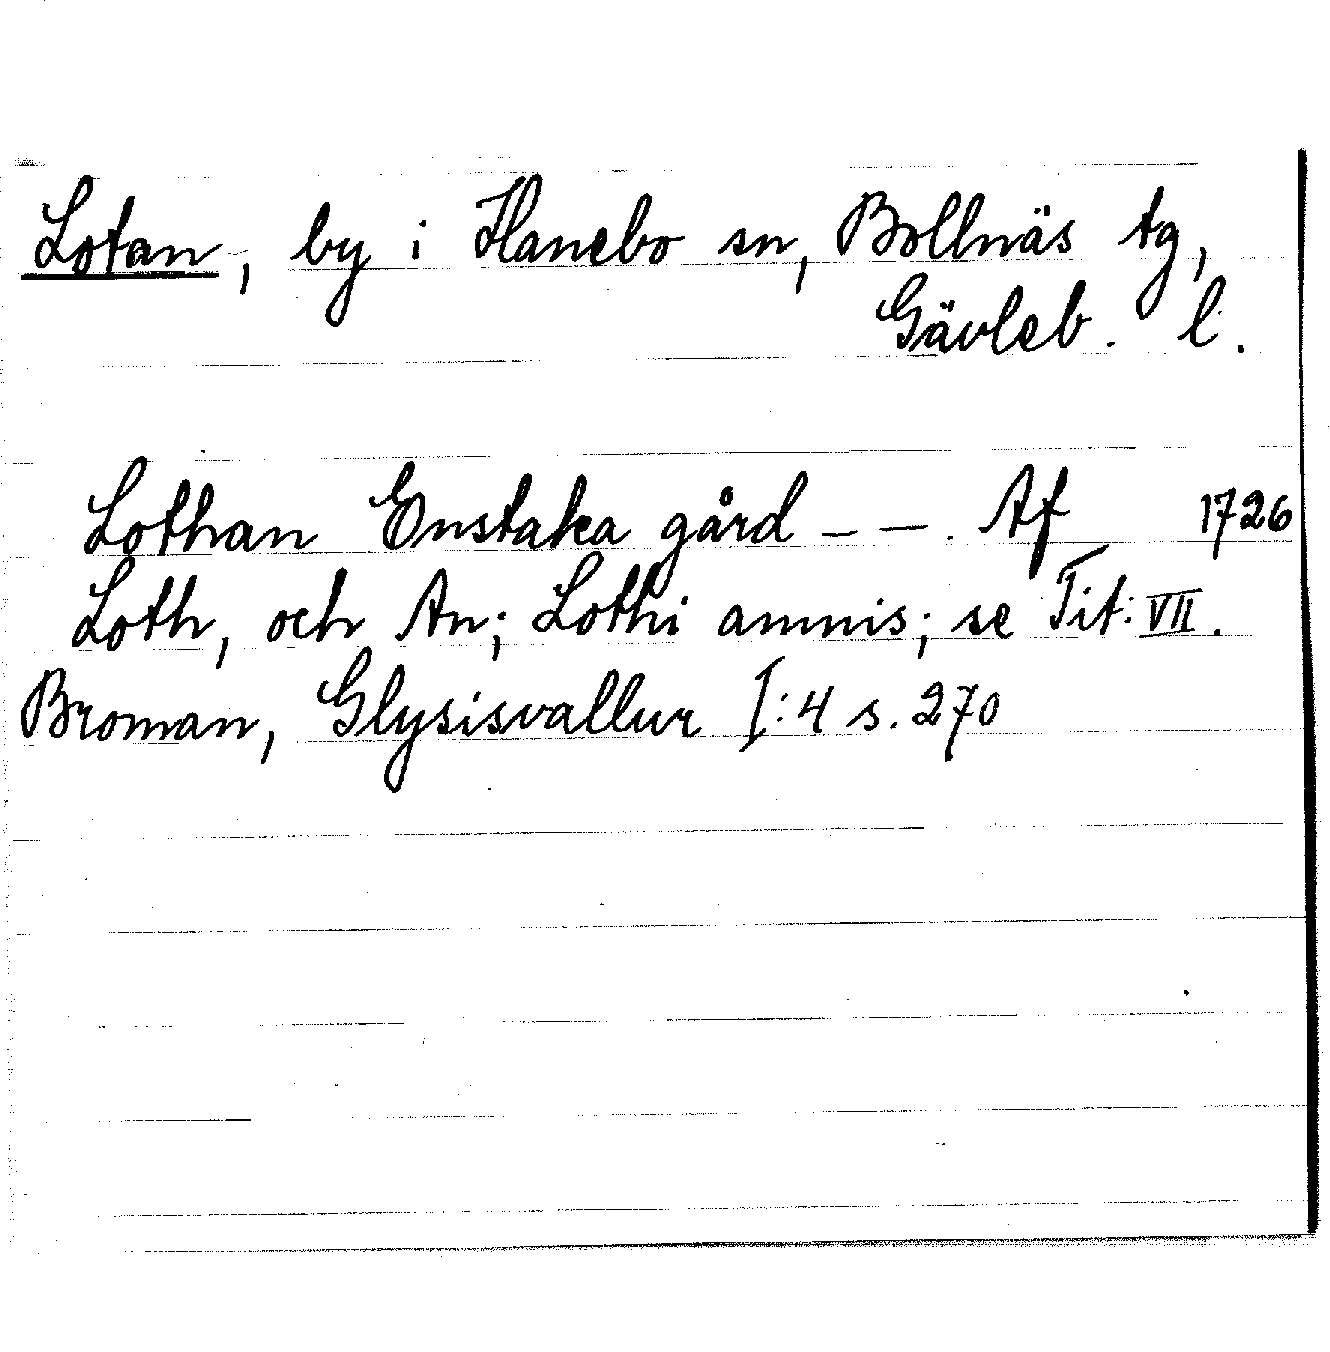 Lotan, by i Hanebo sn, Bollnäs tg,
Gävleb. l.
Lothan Enstaka gård – – . Af 1726
Loth, och An; Lothi amnis; se Tit: VII.
Broman, Glysisvallur I:4 s. 270